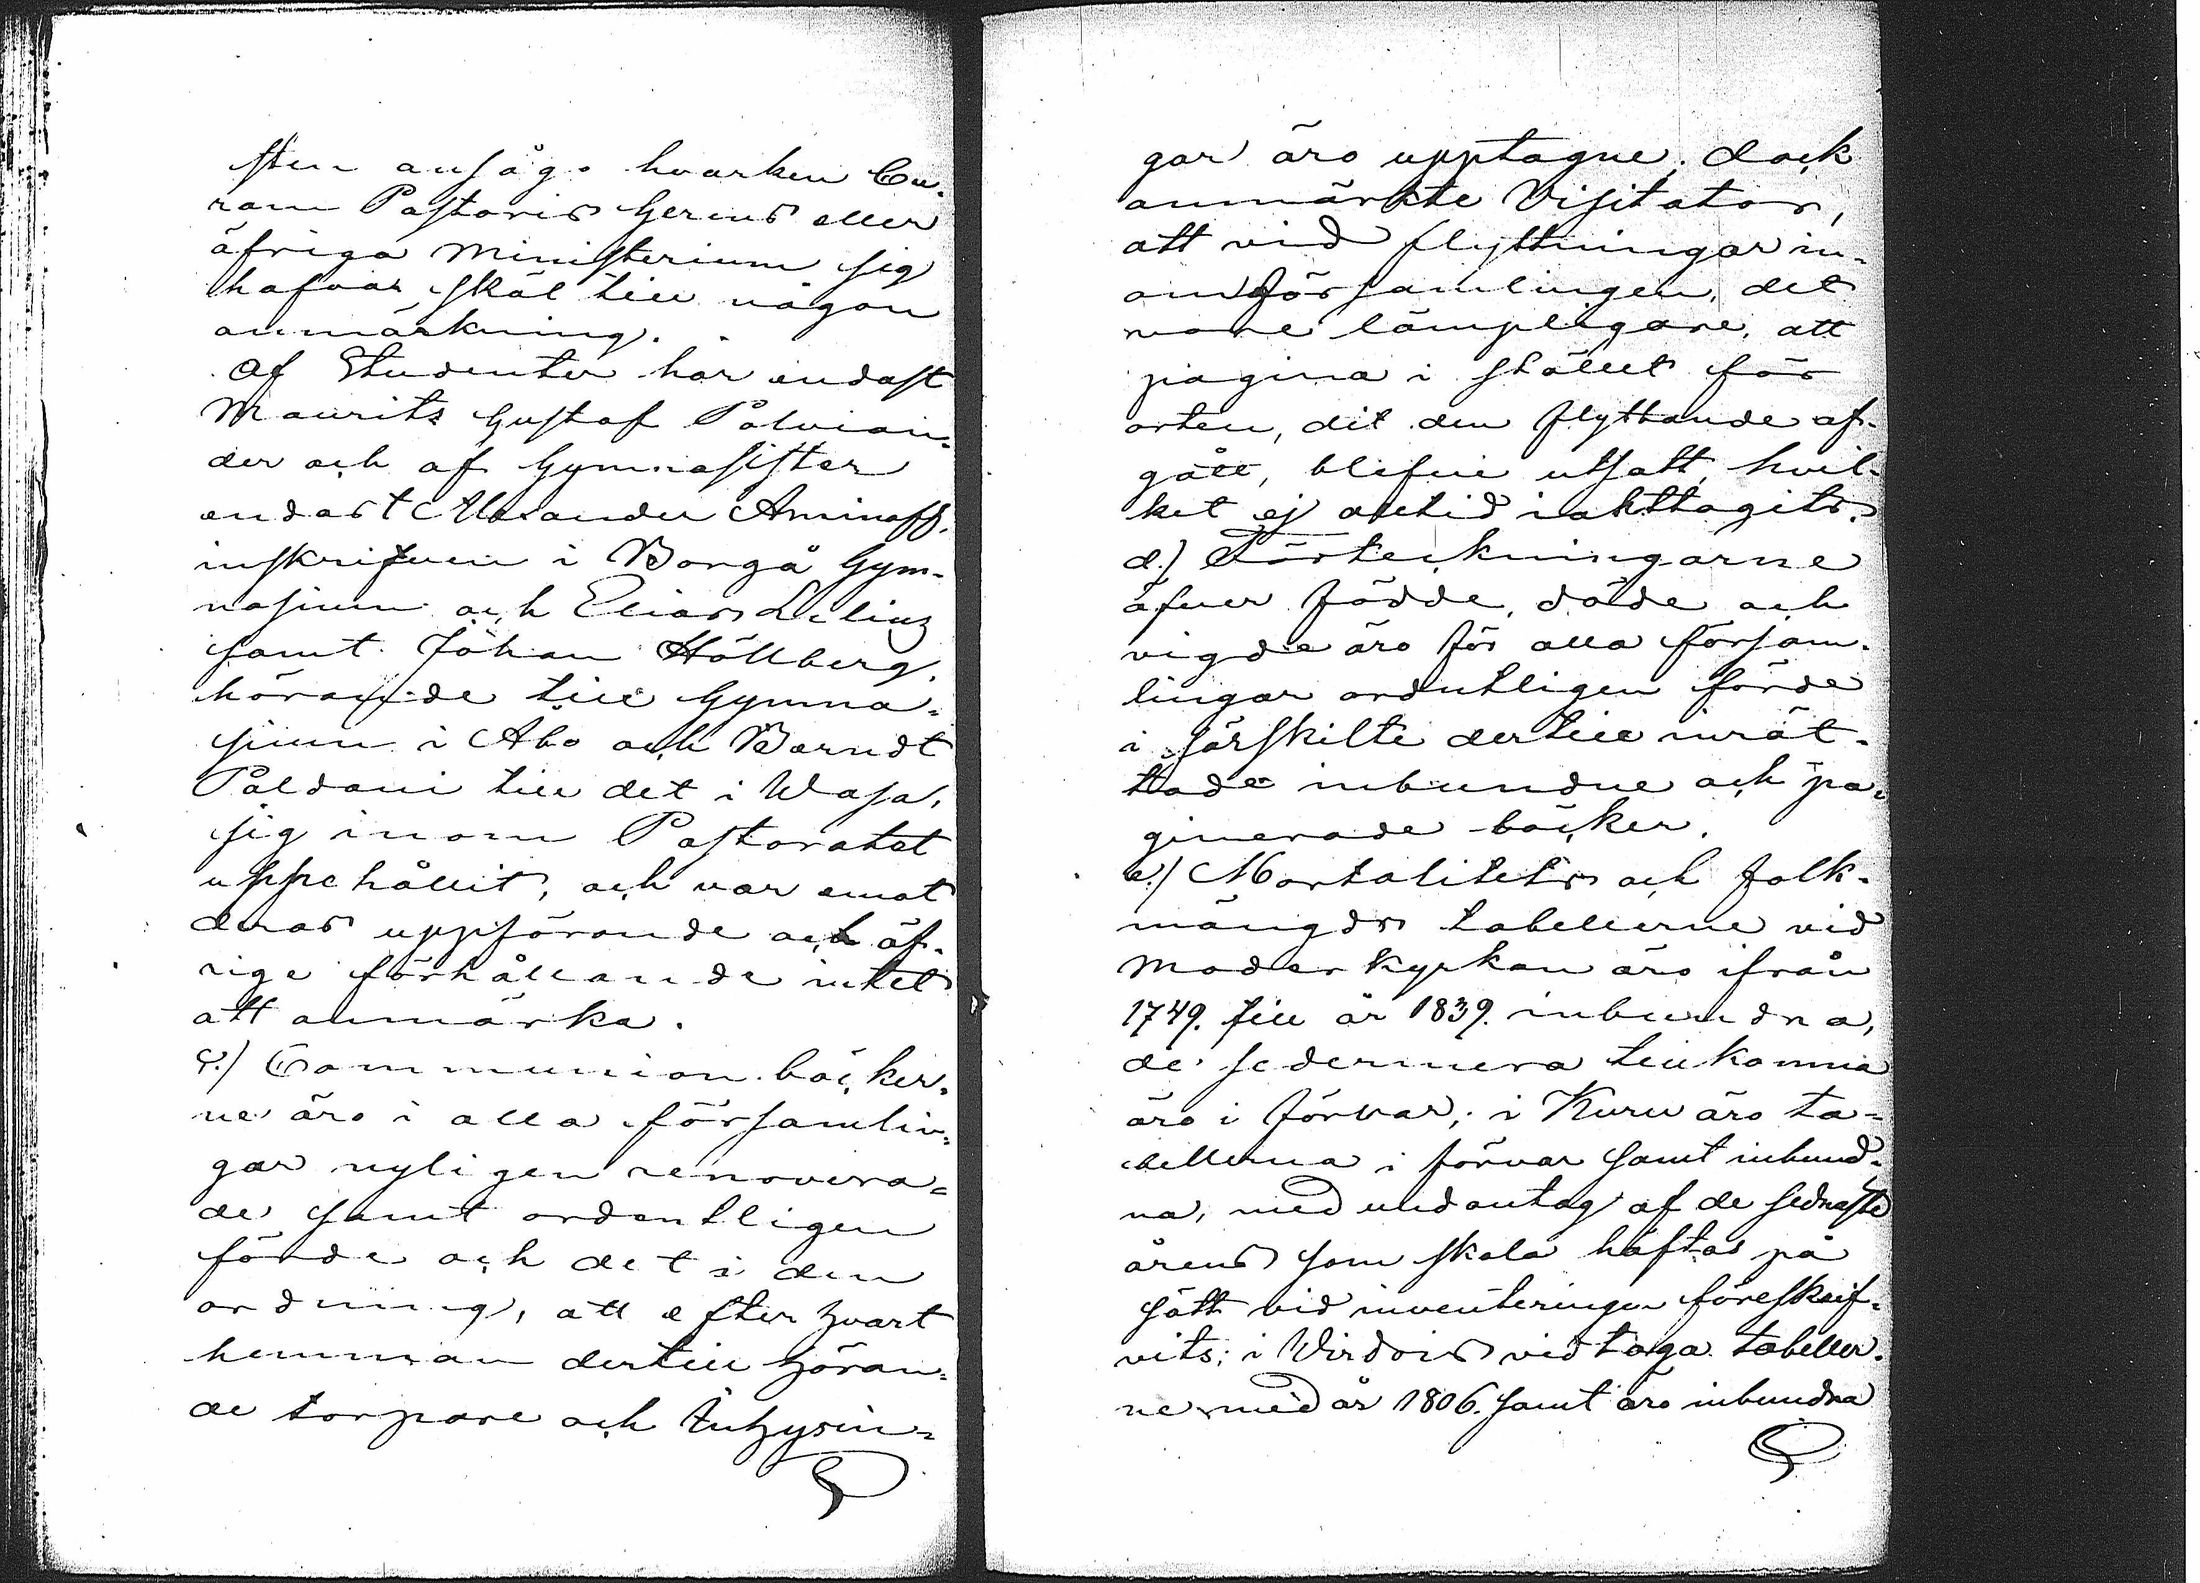 sten ansågo hvarken Cu-
ram Pastoris Gerens eller
öfriga Ministerium sig
hafva skäl till någon
anmärkning.
Af Studenter har endast
Maurits Gustaf Palvian-
der och af Gymnasister
endast Alexander Aminoff,
inskrifven i Borgå Gym-
nasium och Elias
samt Johan Hällberg,
hörande till Gymna-
sium i Åbo och Berndt
Paldani till det i Wasa,
sig inom Pastoratet
uppehållit, och var emot
deras uppförande och öf-
rige förhållande intet
att anmärka.
c.) Communion böcker-
ne äro i alla församlin-
gar nyligen renovera-
de samt ordentligen
förde och det i den
ordning, att efter hvart
hemman dertill höran-
de torpare och Inhysin-
gar äro upptagne; dock
anmärkte Visitator,
att vid flyttningar in-
om församlingen, det
vore lämpligare, att
pagina i stället för
orten, dit den flyttande af-
gått, blefve utsatt, hvil-
ket ej altid iakttagits.
d.) Förteckningarne
öfver födde, döde och
vigde äro för alla försam-
lingar ordentligen förde
i särskilte dertill inrät-
tade inbundne och pa-
ginerade böcker.
e.) Mortalitets och folk-
mängds tabellerne vid
Moderkyrkan äro ifrån
1749. till år 1839. inbundna,
de sedermera tillkomna
äro i förvar; i Kuru äro ta-
bellerna i förvar samt inbund-
na, med undantag af de sednaste
årens som skola häftas på
sätt vid inventeringen föreskrif-
vits; i Virdois vidtaga tabeller-
ne med år 1806. samt äro inbundna